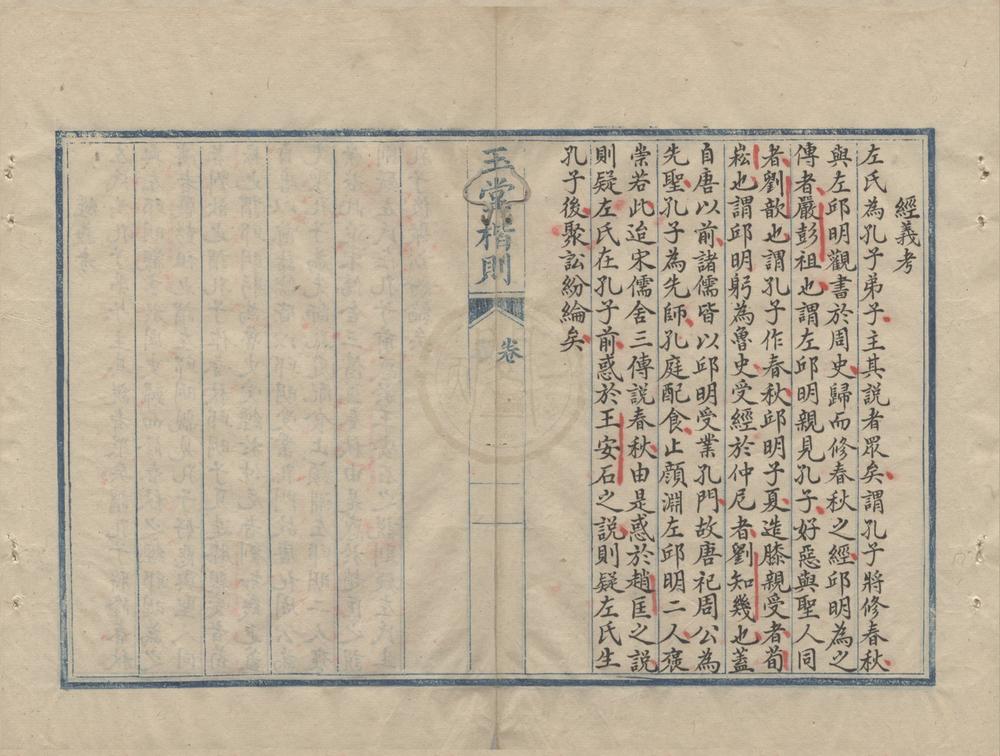 經義考
左氏為孔子弟子主其說者眾矣謂孔子將修春秋
與左邱明觀書於周史歸而修春秋之經邱明為之
傳者嚴彭祖也謂左邱明親見孔子好惡與聖人同
者劉歆也謂孔子作春秋邱明子夏造膝親受者荀
崧也謂邱明躬為魯史受經於仲尼者劉知幾也蓋
自唐以前諸儒皆以邱明受業孔門故唐祀周公為
先聖孔子為先師孔庭配食止顏淵左邱明二人褒
崇若此迨宋儒舍三傳說春秋由是惑於趙匡之說
則疑左氏在孔子前惑於王安石之說則疑左氏生
孔子後聚訟紛綸矣
玉堂楷則
卷